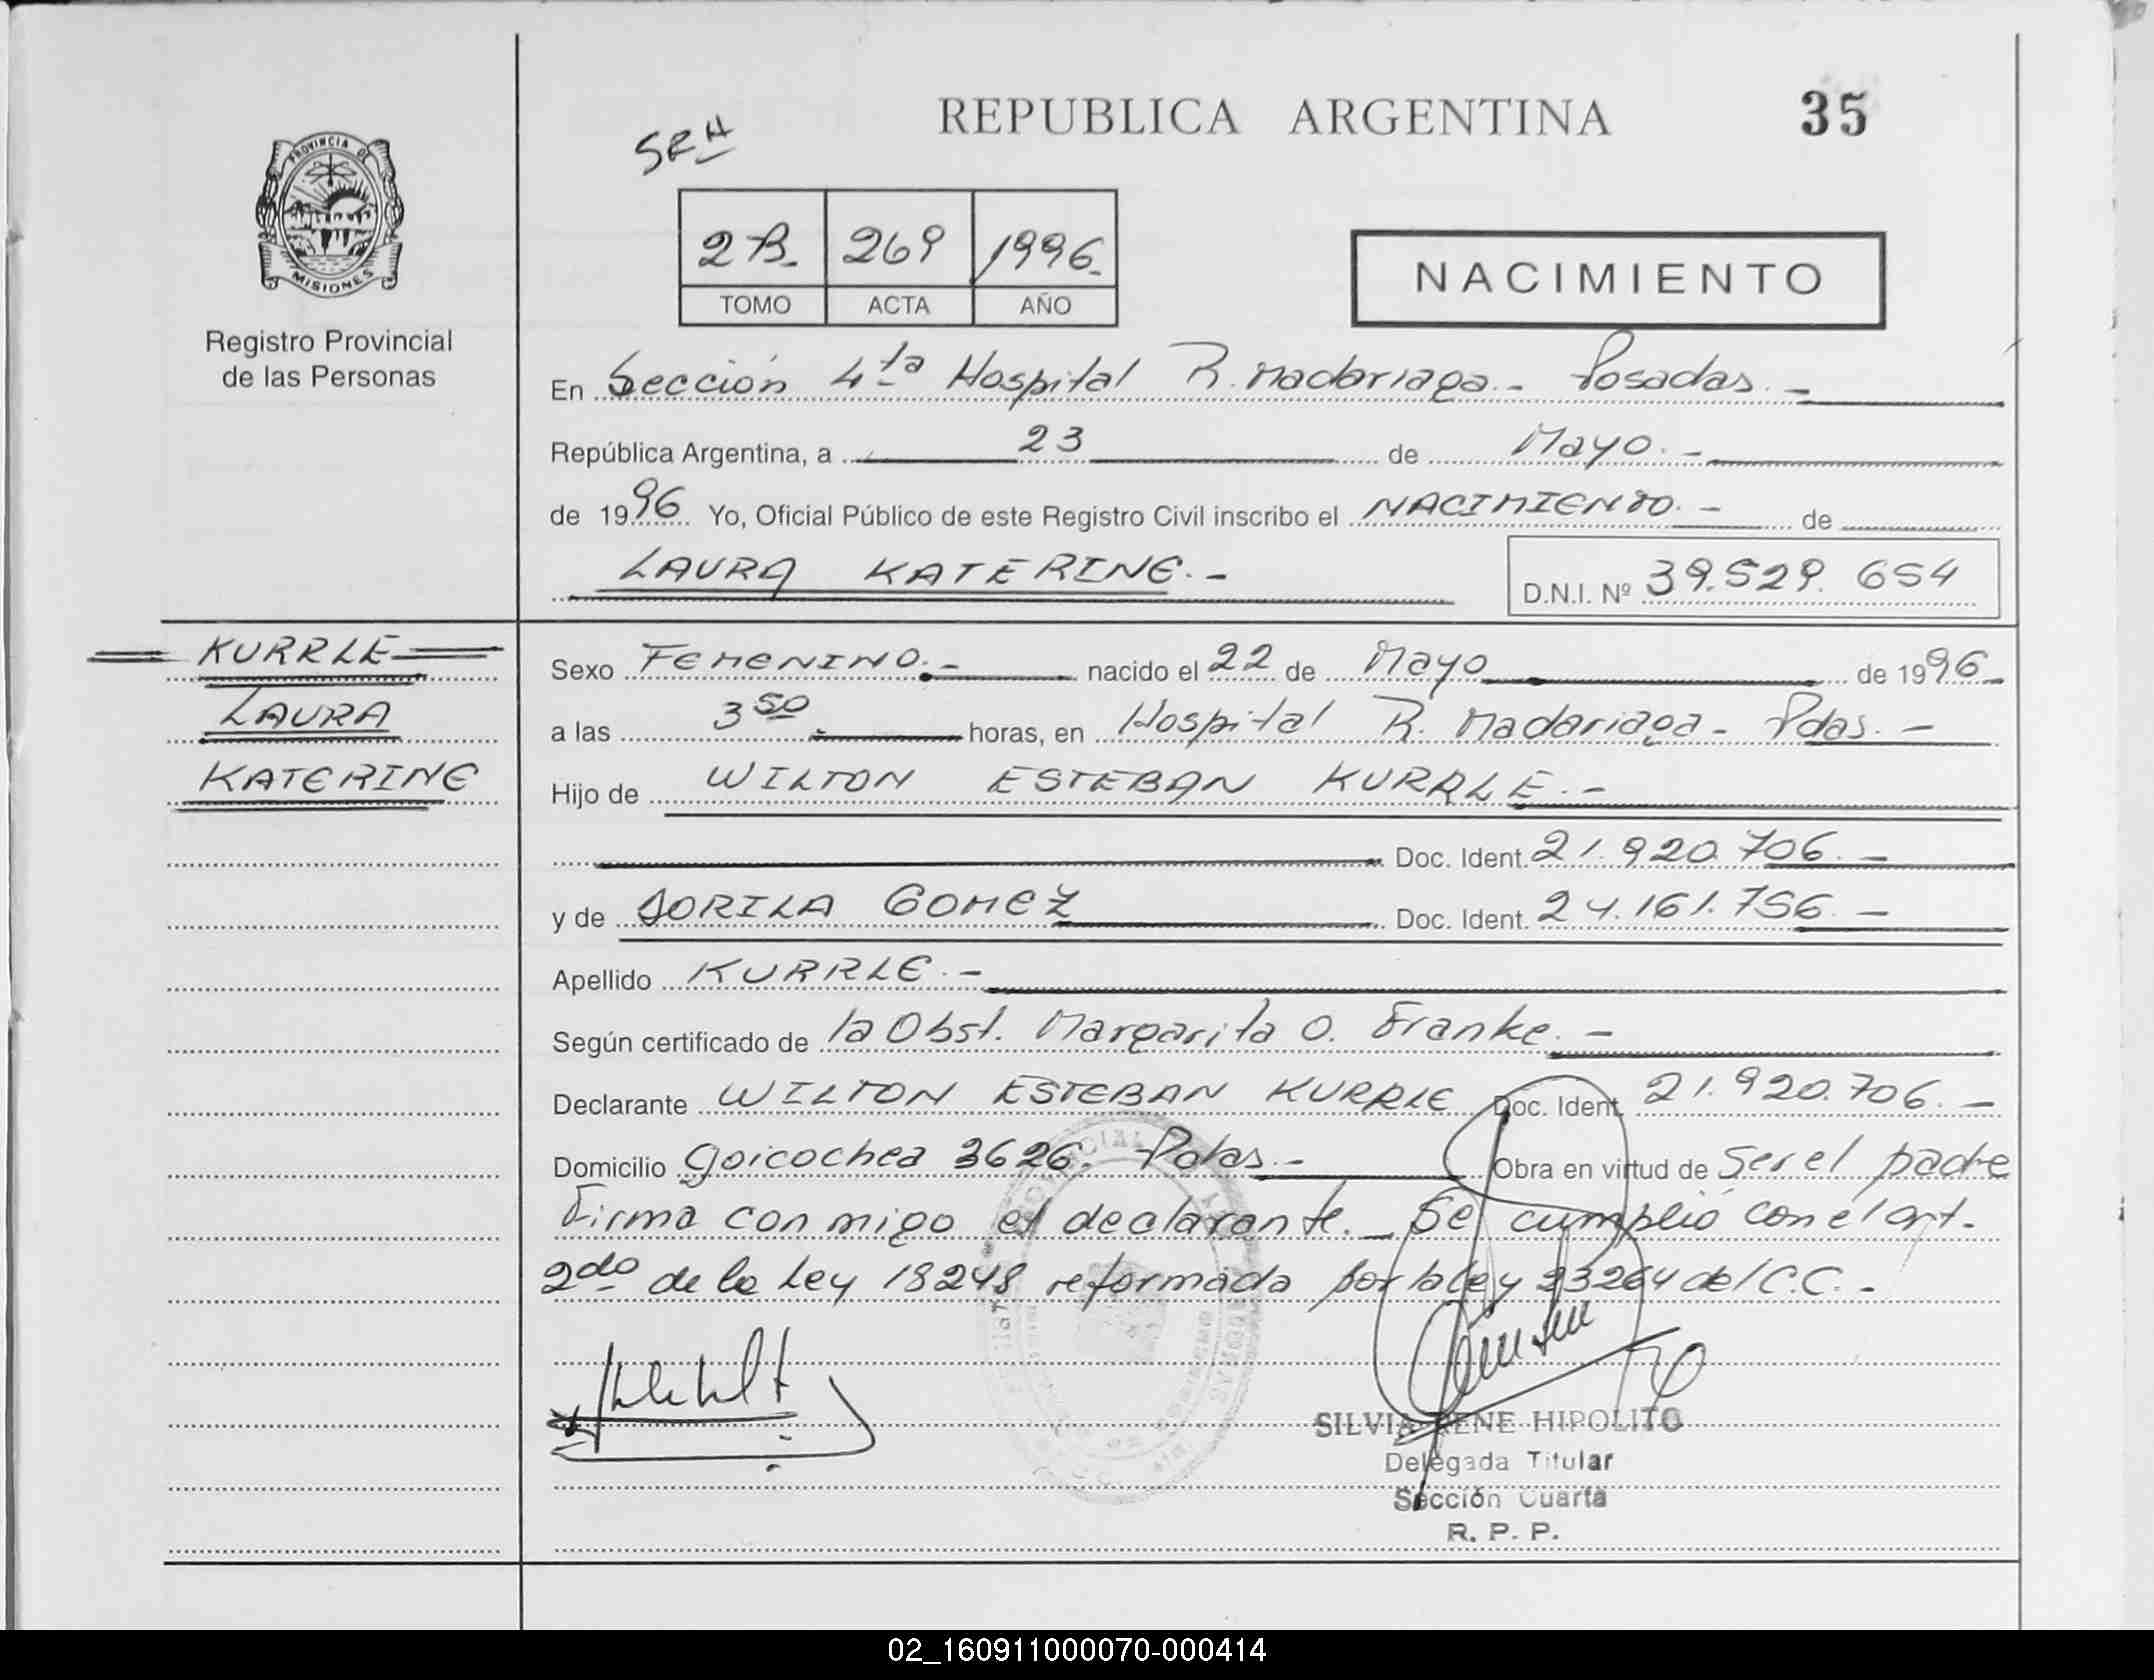 REPUBLICA ARGENTINA
35
PROVINCIA DE
MISIONES
Registro Provincial
de las Personas
2B. 269 1996.
TOMO ACTA AÑO
NACIMIENTO
En Sección 4ta Hospital R. Madariaga - Posadas. -
República Argentina, a 23 de Mayo. -
de 1996 Yo, Oficial Público de este Registro Civil inscribo el NACIMIENTO. - de
LAURA KATERINE. - D.N.I. Nº 39.529.654
KURRLE
LAURA
KATERINE
Sexo FEMENINO. - nacido el 22 de Mayo de 1996
a las 3 50 horas, en Hospital R. Madariaga - Pdas. -
Hijo de WILTON ESTEBAN KURRLE. -
Doc. Ident. 21.920.706. -
y de GOMEZ Doc. Ident. 24.161.756. -
Apellido KURRLE. -
Según certificado de la Obst. Margarita O. Franke. -
Declarante WILTON ESTEBAN KURRLE Doc. Ident. 21.920.706. -
Domicilio Goicochea 3626. Pdas. - Obra en virtud de Ser el padre
Firma conmigo el declarante. - Se cumplió con el art.
2do de la Ley 18248 reformada por la ley 23264 del C.C. -
SILVIA RENE HIPOLITO
Delegada Titular
Sección Cuarta
R. P. P.
02_160911000070-000414